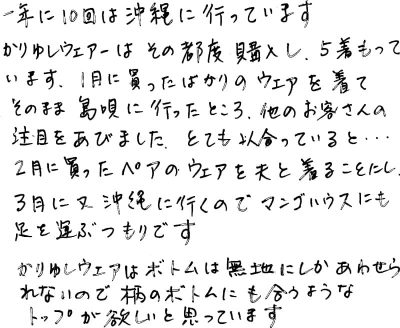 一年に10回は沖縄に行っています
かりゆしウェアーはその都度購入し、5着もって
います。1月に買ったばかりのウェアを着て
そのまま島唄に行ったところ、他のお客さんの
注目をあびました。とても似合っていると・・・
2月に買ったペアのウェアを夫と着ることにし、
3月に又沖縄に行くのでマンゴハウスにも
足を運ぶつもりです
かりゆしウェアはボトムは無地にしかあわせら
れないので柄のボトムにも合うような
トップが欲しいと思っています